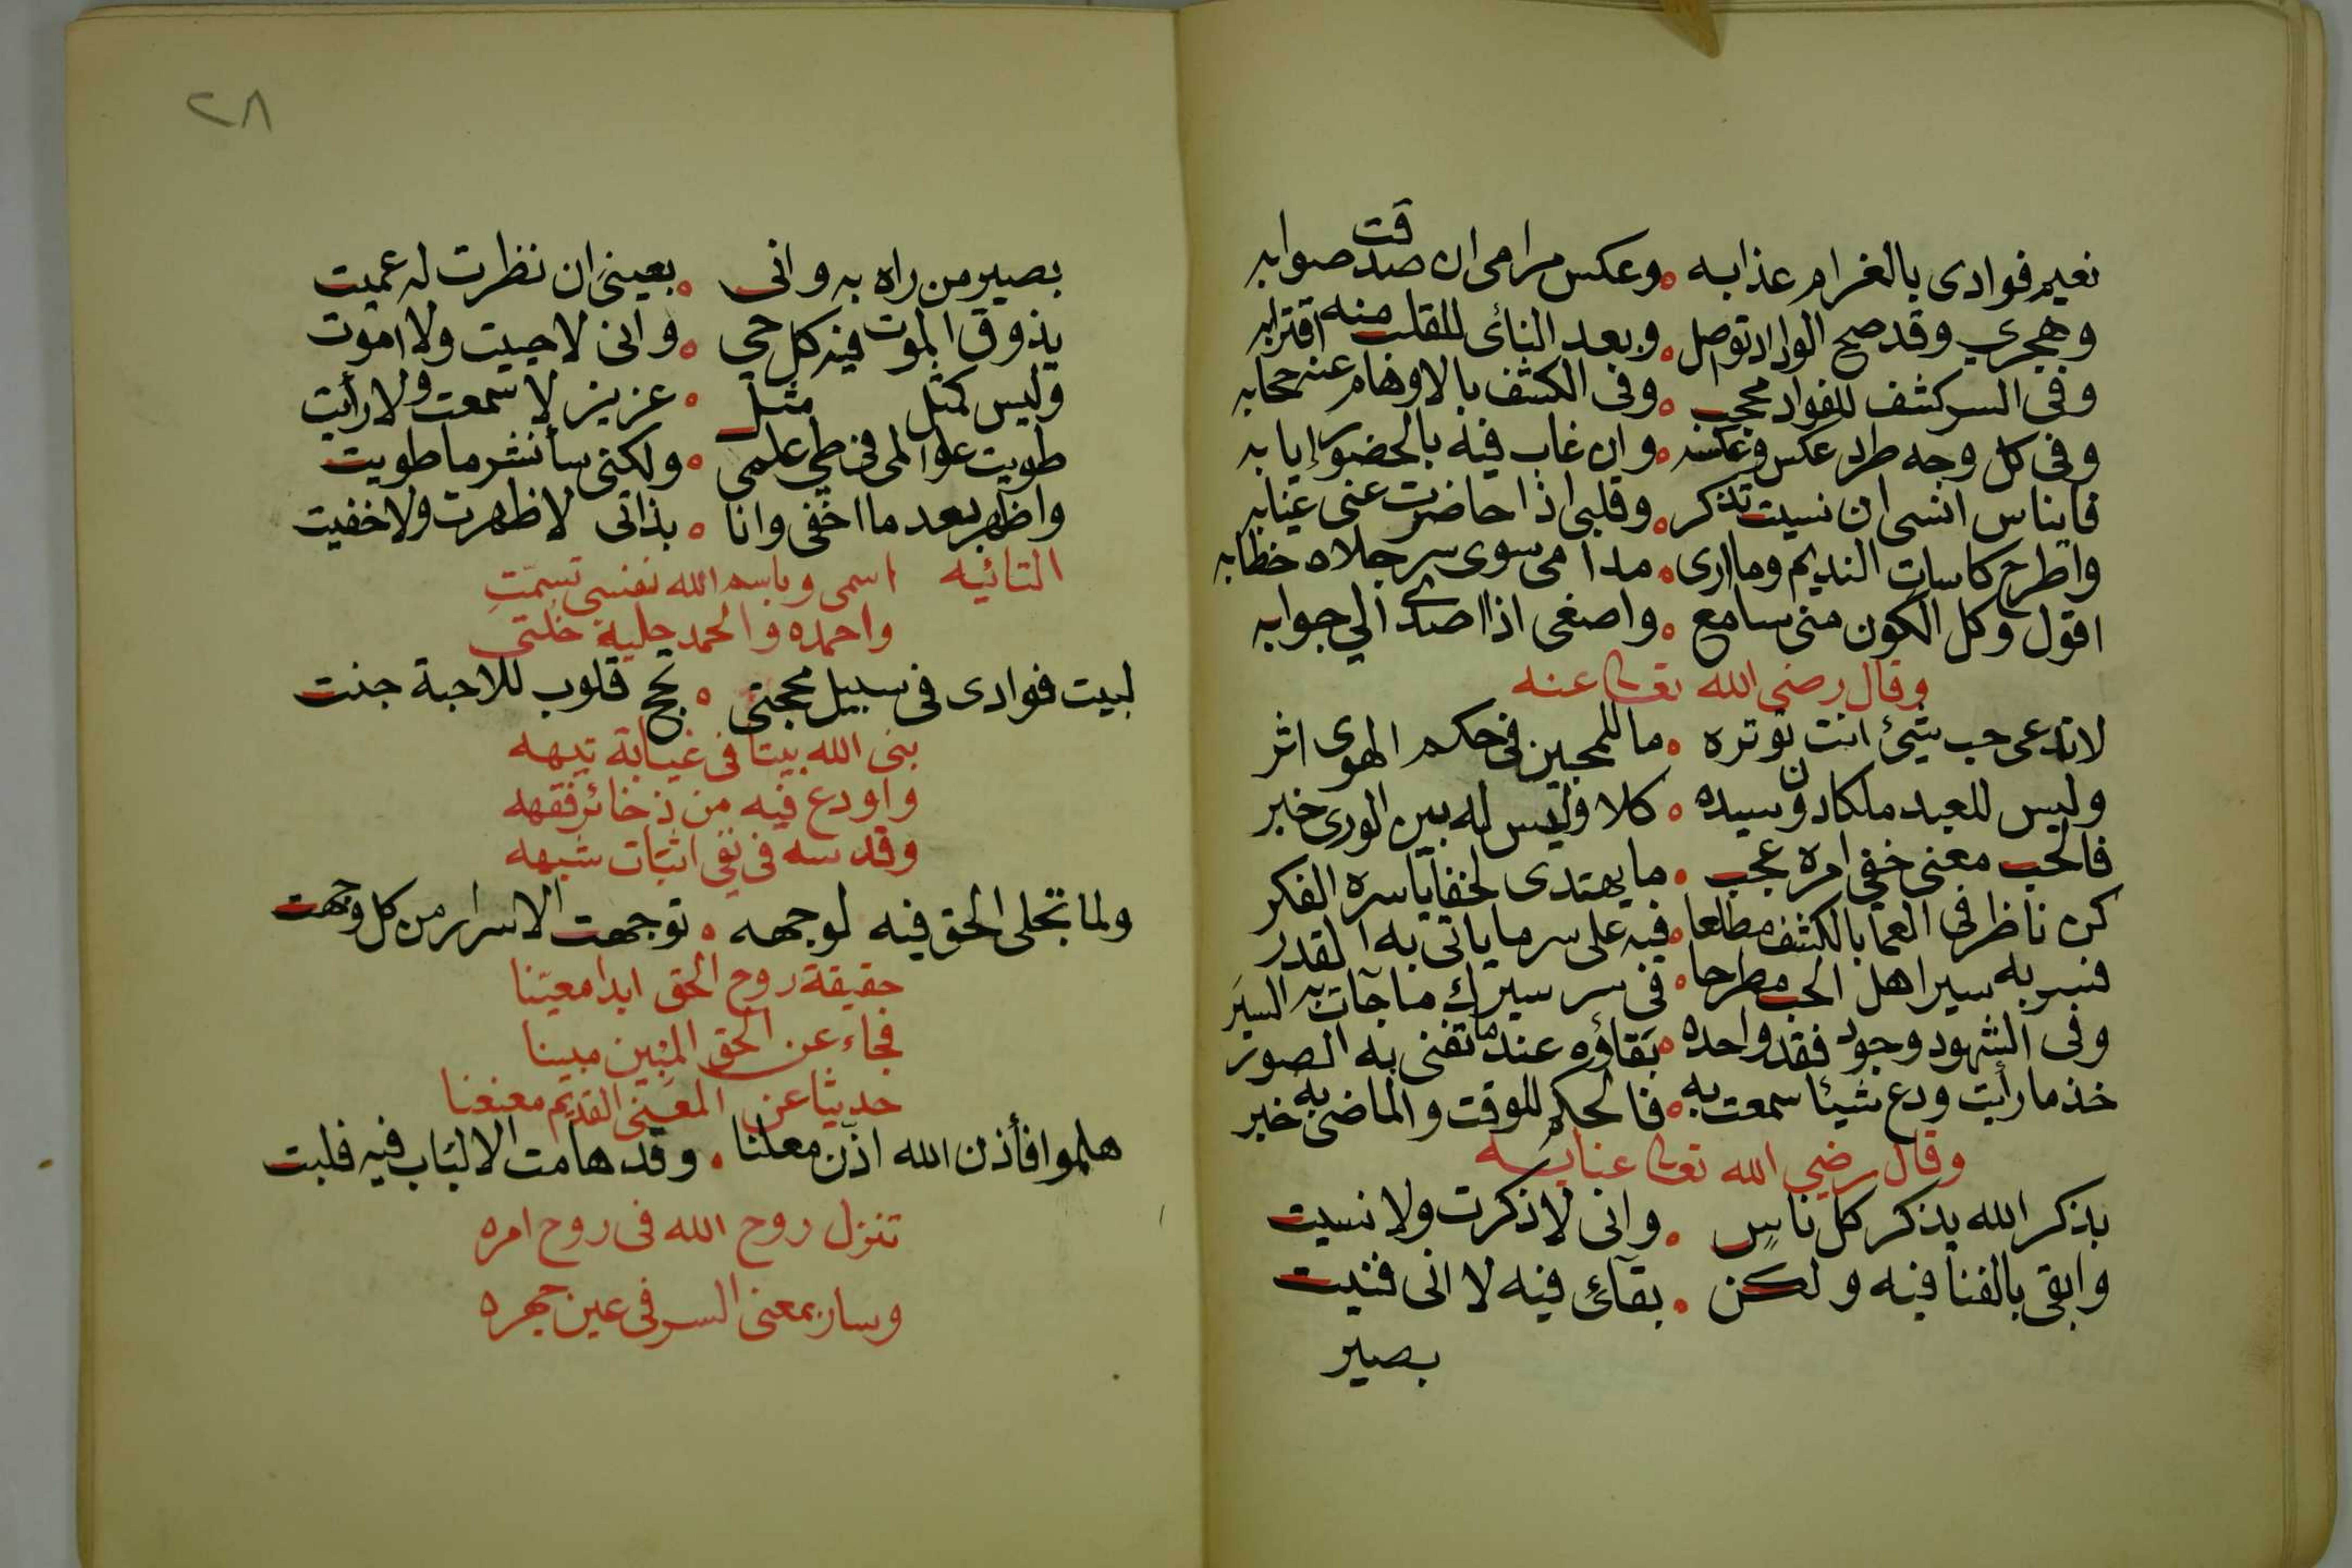 نعيم فوادى بالغرام عذابه ٥ وعكس مرامى ان صدقت صوابه
وهجري وقد صح الوداد توصل ٥ وبعد النائى للقلب منه اقترابه
وفى السر كشف للفواد محجب ٥ وفى الكشف بالاوهام عنه حجابه
وفى كل وجه طرد عكس وعكسه ٥ وان غاب فيه بالحضور إيابه
فايناس انسى ان نسيت تذكر ٥ وقلبى اذا حاضرت عنى غيابه
واطرح كاسات النديم وما ارى ٥ مدامى سوى سر جلاه خطابه
اقول وكل الكون منى سامع ٥ واصغى اذا اصدى الي جوابه
وقال رضى الله تعالى عنه
لاتدعى حب شئ انت توثره ٥ ما للمحبين فى حكم الهوى اثر
وليس للعبد ملكا دون سيده ٥ كلا وليس له بين الورى خبر
فالحب معنى خفي امره عجب ٥ ما يهتدى لخفايا سره الفكر
كن ناظر فى العما بالكشف مطلعا ٥ فيه على سر ما ياتى به القدر
فسر به سير اهل الحب مطرحا ٥ فى سر سيرك ما جآت به السير
وفى الشهود وجود فقد واحده ٥ بقاؤه عند ما تفنى به الصور
خذ ما رأيت ودع شيئا سمعت به ٥ فالحكم للوقت والماضى به خبر
وقال رضى الله تعالى عنا به
بذكر الله يذكر كل ناس ٥ وانى لا ذكرت ولا نسيت
وابقى بالفنا فيه ولكن ٥ بقآئ فيه لا انى فنيت
بصير
٢٨
بصير من راه به وانى ٥ بعينى ان نظرت له عميت
يذوق الموت فيه كل حي ٥ وانى لا حييت ولا اموت
وليس كمثل مثل ٥ عزيز لا سمعت ولا رأيت
طويت عوالمى فى طي علمى ٥ ولكنى سأنشر ما طويت
واظهر بعد ما اخفى وانا ٥ بذاتى لا ظهرت ولا خفيت
التائيه اسمى وباسم الله نفسى تسمّت
واحمده والحمد حلية خلتى
لبيت فوادى فى سبيل محجتى ٥ تحج قلوب للاحبة جنت
بنى الله بيتا فى غيابة تيهه
واودع فيه من ذخائر فقهه
وقدسه فى نفى اثبات شبهه
ولما تجلى الحق فيه لوجهه ٥ توجهت الاسرار من كل وجهت
حقيقة روح الحق ابدا معيّنا
فجاء عن الحق المبين مبينا
حديثا عن المعنى القديم معنعنا
هلموا فأذن الله اذّن معلنا ٥ وقد هامت الالباب فيه فلبت
تنزل روح الله فى روح امره
وسار بمعنى السر فى عين جهره